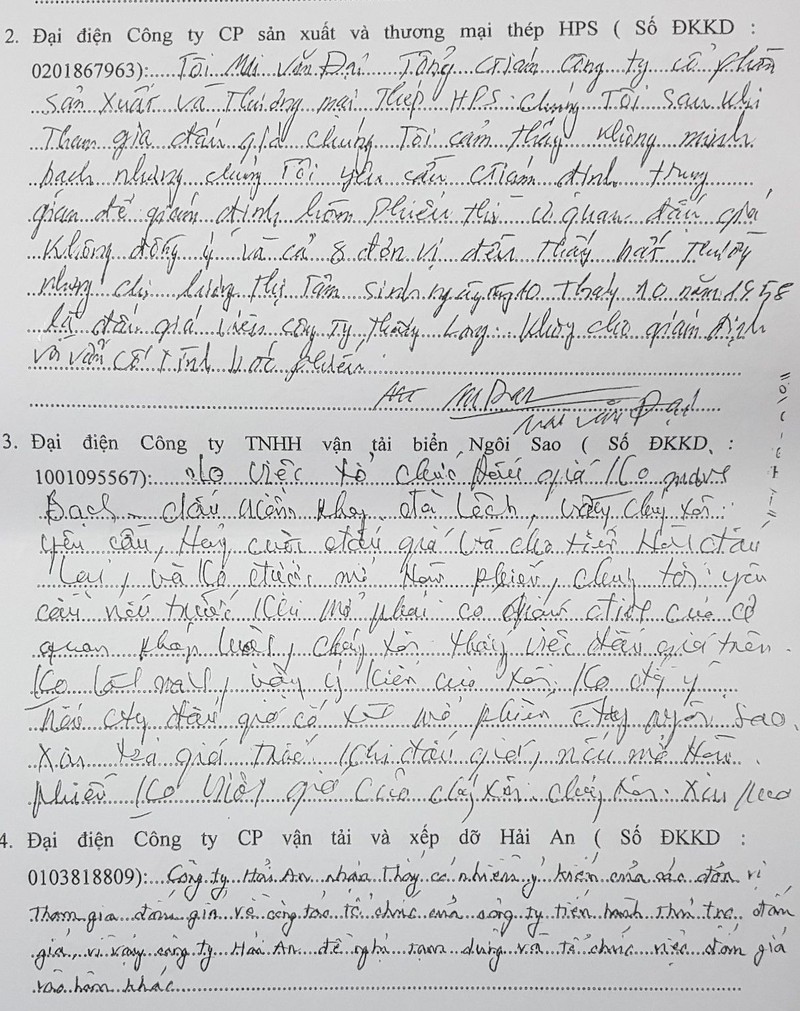 2. Đại điện Công ty CP sản xuất và thương mại thép HPS ( Số ĐKKD :
0201867963): Tôi Mai Văn Đại Tổng Giám công ty cổ phần
Sản Xuất và Thương mại Thép HPS. chúng Tôi Sau khi
Tham gia đấu giá chúng Tôi cảm thấy không minh
bạch nhưng chúng Tôi yêu cầu Giám định trung
gian để giám định hòm phiếu thì cơ quan đấu giá
không đồng ý và cả 8 đơn vị đều thấy bất thường
nhưng chị Lương Thị Tâm Sinh ngày 10 Tháng 10 năm 1958
là đấu giá viên công ty Thăng Long. không cho giám định
và vẫn cố tình bóc phiếu
Mai Văn Đại
3. Đại điện Công ty TNHH vận tải biển Ngôi Sao ( Số ĐKKD :
1001095567): việc tổ chức đấu giá Ko
Bạch dấu niêm phong đã lệch, chúng tôi
yêu cầu, Hủy cuộc đấu giá và cho tiến Hành đấu
lại, và Ko được mở Hòm phiếu, chúng tôi yêu
cầu nếu trước khi mở phải có giám định của cơ
quan pháp luật, chúng tôi thấy việc đấu giá trên
Ko, vậy ý kiến của tôi Ko đồng ý
Nếu cty đấu giá cố mở phiếu cty ngôi Sao
Xin trả giá đấu giá, nếu mở Hòm
phiếu Ko giá của chúng tôi chúng tôi Xin
4. Đại điện Công ty CP vận tải và xếp dỡ Hải An ( Số ĐKKD :
0103818809): Công ty Hải An nhận thấy có nhiều ý kiến của các đơn vị
tham gia đấu giá về công tác tổ chức của công ty tiến hành thủ tục đấu
giá, vì vậy công ty Hải An đề nghị tạm dừng và tổ chức việc đấu giá
vào hôm khác